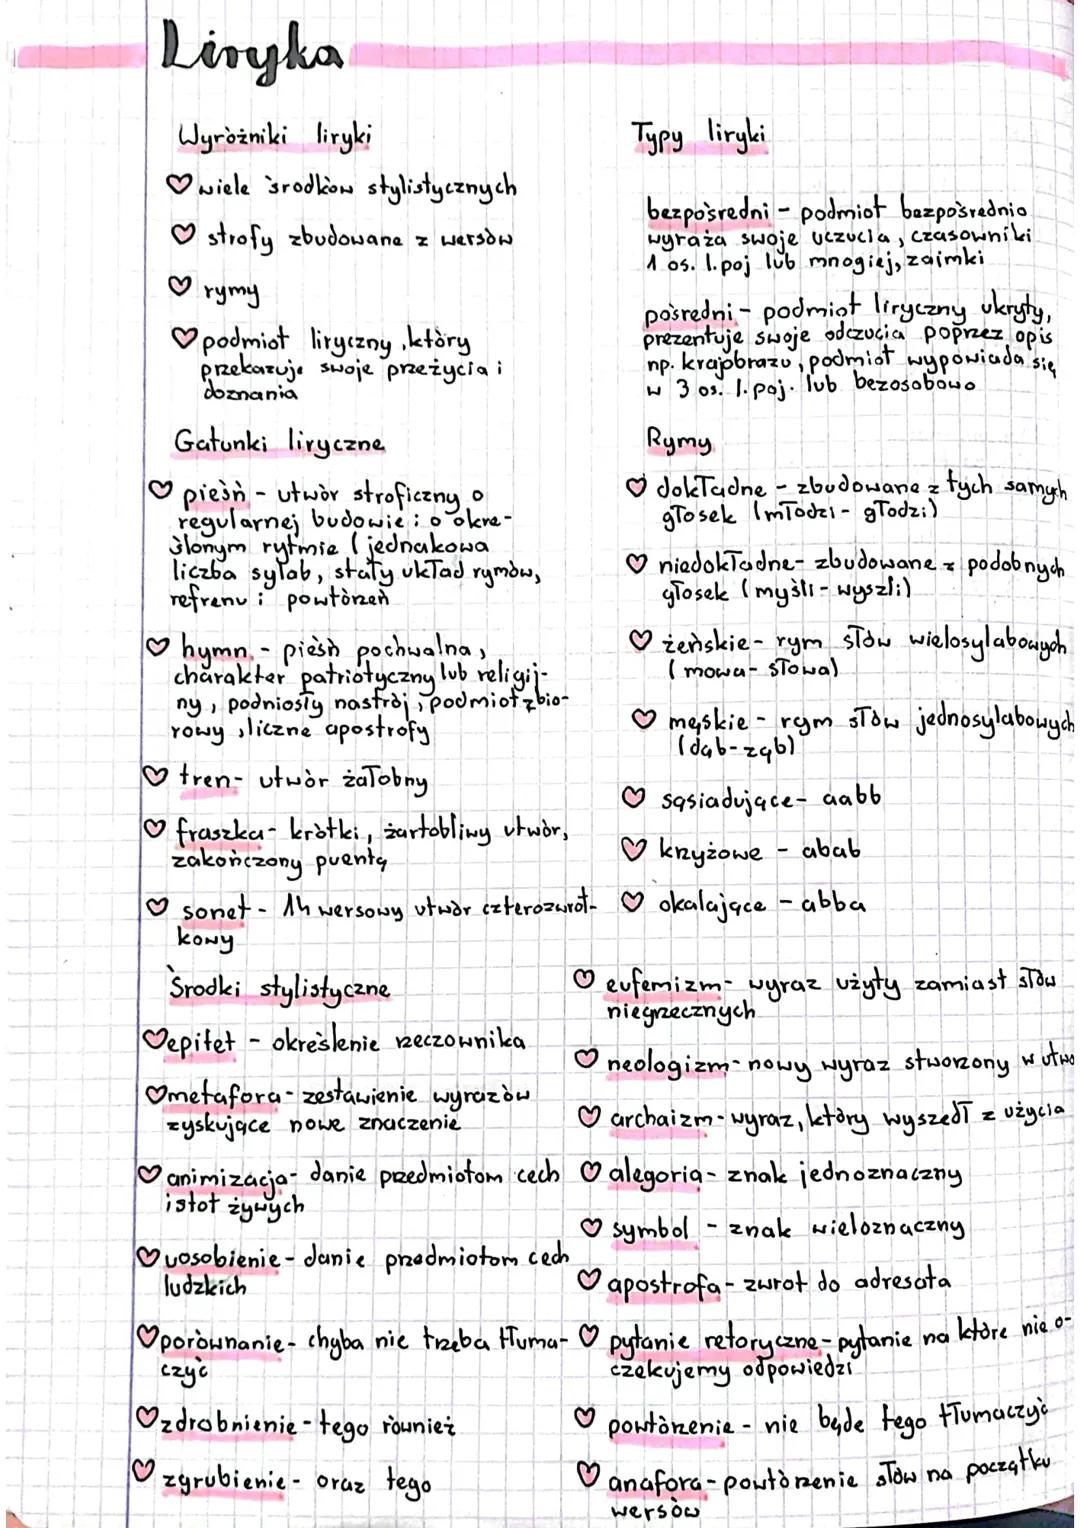 Liryka
Wyróżniki liryki
wiele środków stylistycznych
strofy zbudowane z wersów
rymy
podmiot liryczny, który
przekazuje swoje przeżycia i
doznania
Gatunki liryczne
pieśń - utwór stroficzny o
regularnej budowie i o okre-
ślonym rytmie (jednakowa
liczba sylab, stały układ rymów,
refrenu i powtórzeń
hymn - pieśń pochwalna,
charakter patriotyczny lub religij-
ny, podniosły nastrój, podmiot zbio-
rowy, liczne apostrofy
tren - utwór żałobny
fraszka - krótki, żartobliwy utwór,
zakończony puentą
sonet - 14 wersowy utwór czterozwrot-
kowy
Typy liryki
bezpośredni - podmiot bezpośrednio
wyraża swoje uczucia, czasowniki
1 os. l. poj lub mnogiej, zaimki
pośredni - podmiot liryczny ukryty,
prezentuje swoje odczucia poprzez opis
np. krajobrazu, podmiot wypowiada się
w 3 os. l. poj. lub bezosobowo
Rymy
dokładne - zbudowane z tych samych
głosek (młodzi - głodzi)
niedokładne - zbudowane z podobnych
głosek (myśli - wyszli)
żeńskie - rym słów wielosylabowych
(mowa - słowa)
męskie - rym słów jednosylabowych
(dąb - ząb)
sąsiadujące - aabb
krzyżowe - abab
okalające - abba
Środki stylistyczne
epitet - określenie rzeczownika
metafora - zestawienie wyrazów
zyskujące nowe znaczenie
animizacja - danie przedmiotom cech
istot żywych
uosobienie - danie przedmiotom cech
ludzkich
porównanie - chyba nie trzeba tłuma-
czyć
zdrobnienie - tego również
zgrubienie - oraz tego
eufemizm - wyraz użyty zamiast słów
niegrzecznych
neologizm - nowy wyraz stworzony w utwo
archaizm - wyraz, który wyszedł z użycia
alegoria - znak jednoznaczny
symbol - znak wieloznaczny
apostrofa - zwrot do adresata
pytanie retoryczne - pytanie na które nie o-
czekujemy odpowiedzi
powtórzenie - nie będe tego tłumaczyć
anafora - powtórzenie słów na początku
wersów